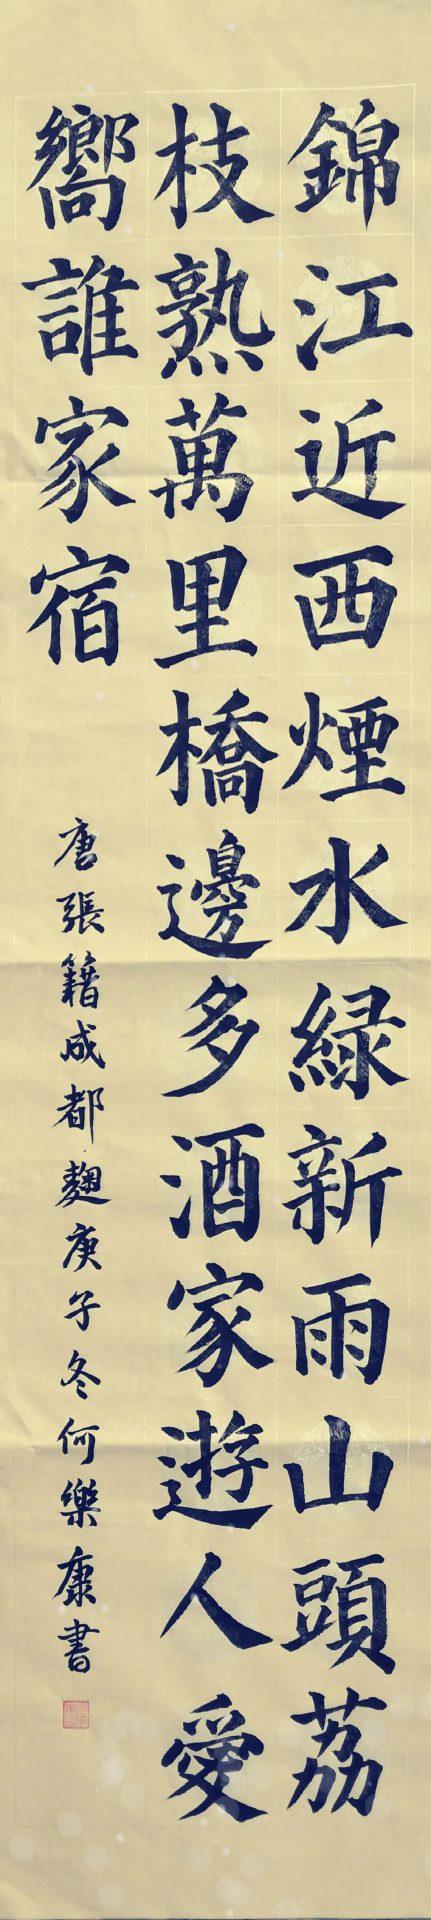 錦江近西煙水緑新雨山頭荔
枝熟萬里橋邊多酒家遊人愛
嚮誰家宿
唐張籍成都麯庚子冬何樂康書